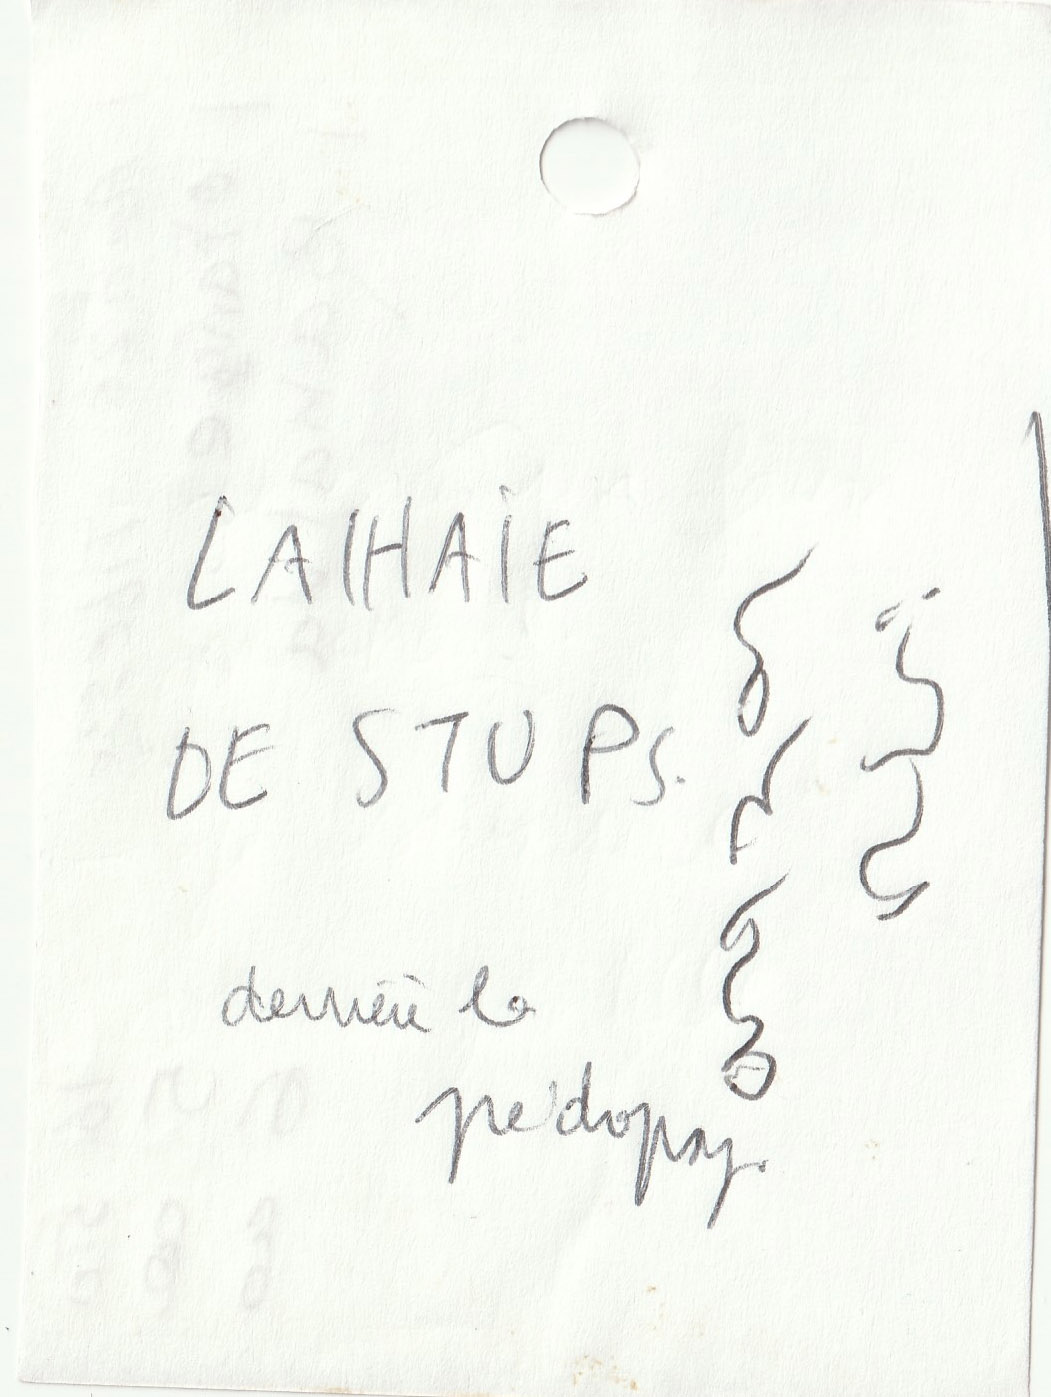 LA HAIE
DE STUPS.
derrière la
pédopsy.